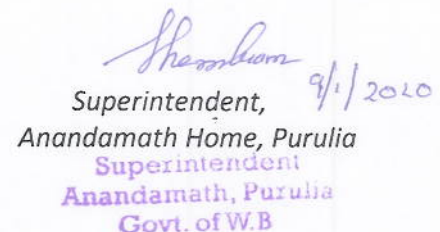 9/1/2020
Superintendent,
Anandamath Home, Purulia
Superintendent
Anandamath, Purulia
Govt. of W.B